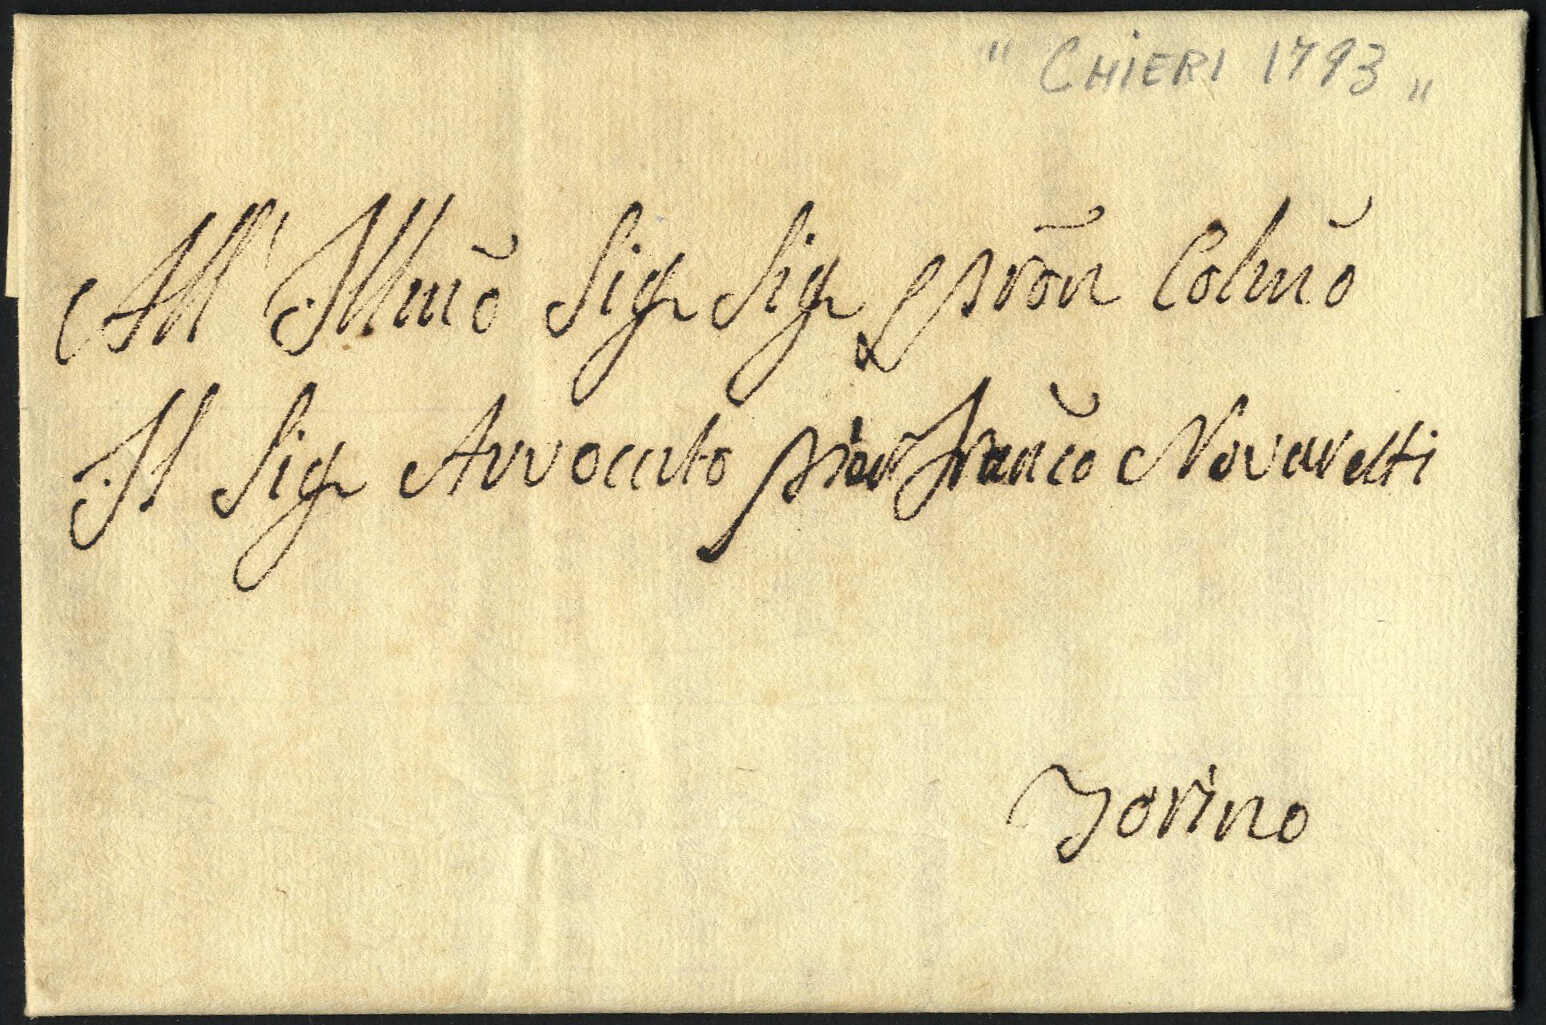 " CHIERI 1793 "
All' Illmõ Sig Sig Pròn Colmõ
Il Sig Avvocato Pier Franco Novaretti
Torino